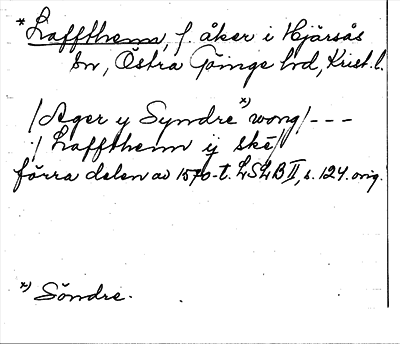 *Laffthenn, f. åker i Hjärsås
sn, Östra Göinge hd, Krist. l.
/Ager y Syndre *) wong/---
/ Laffthenn ij ske/
förra delen av 1570-t. LSLB II, s. 124. orig.
*) Söndre.